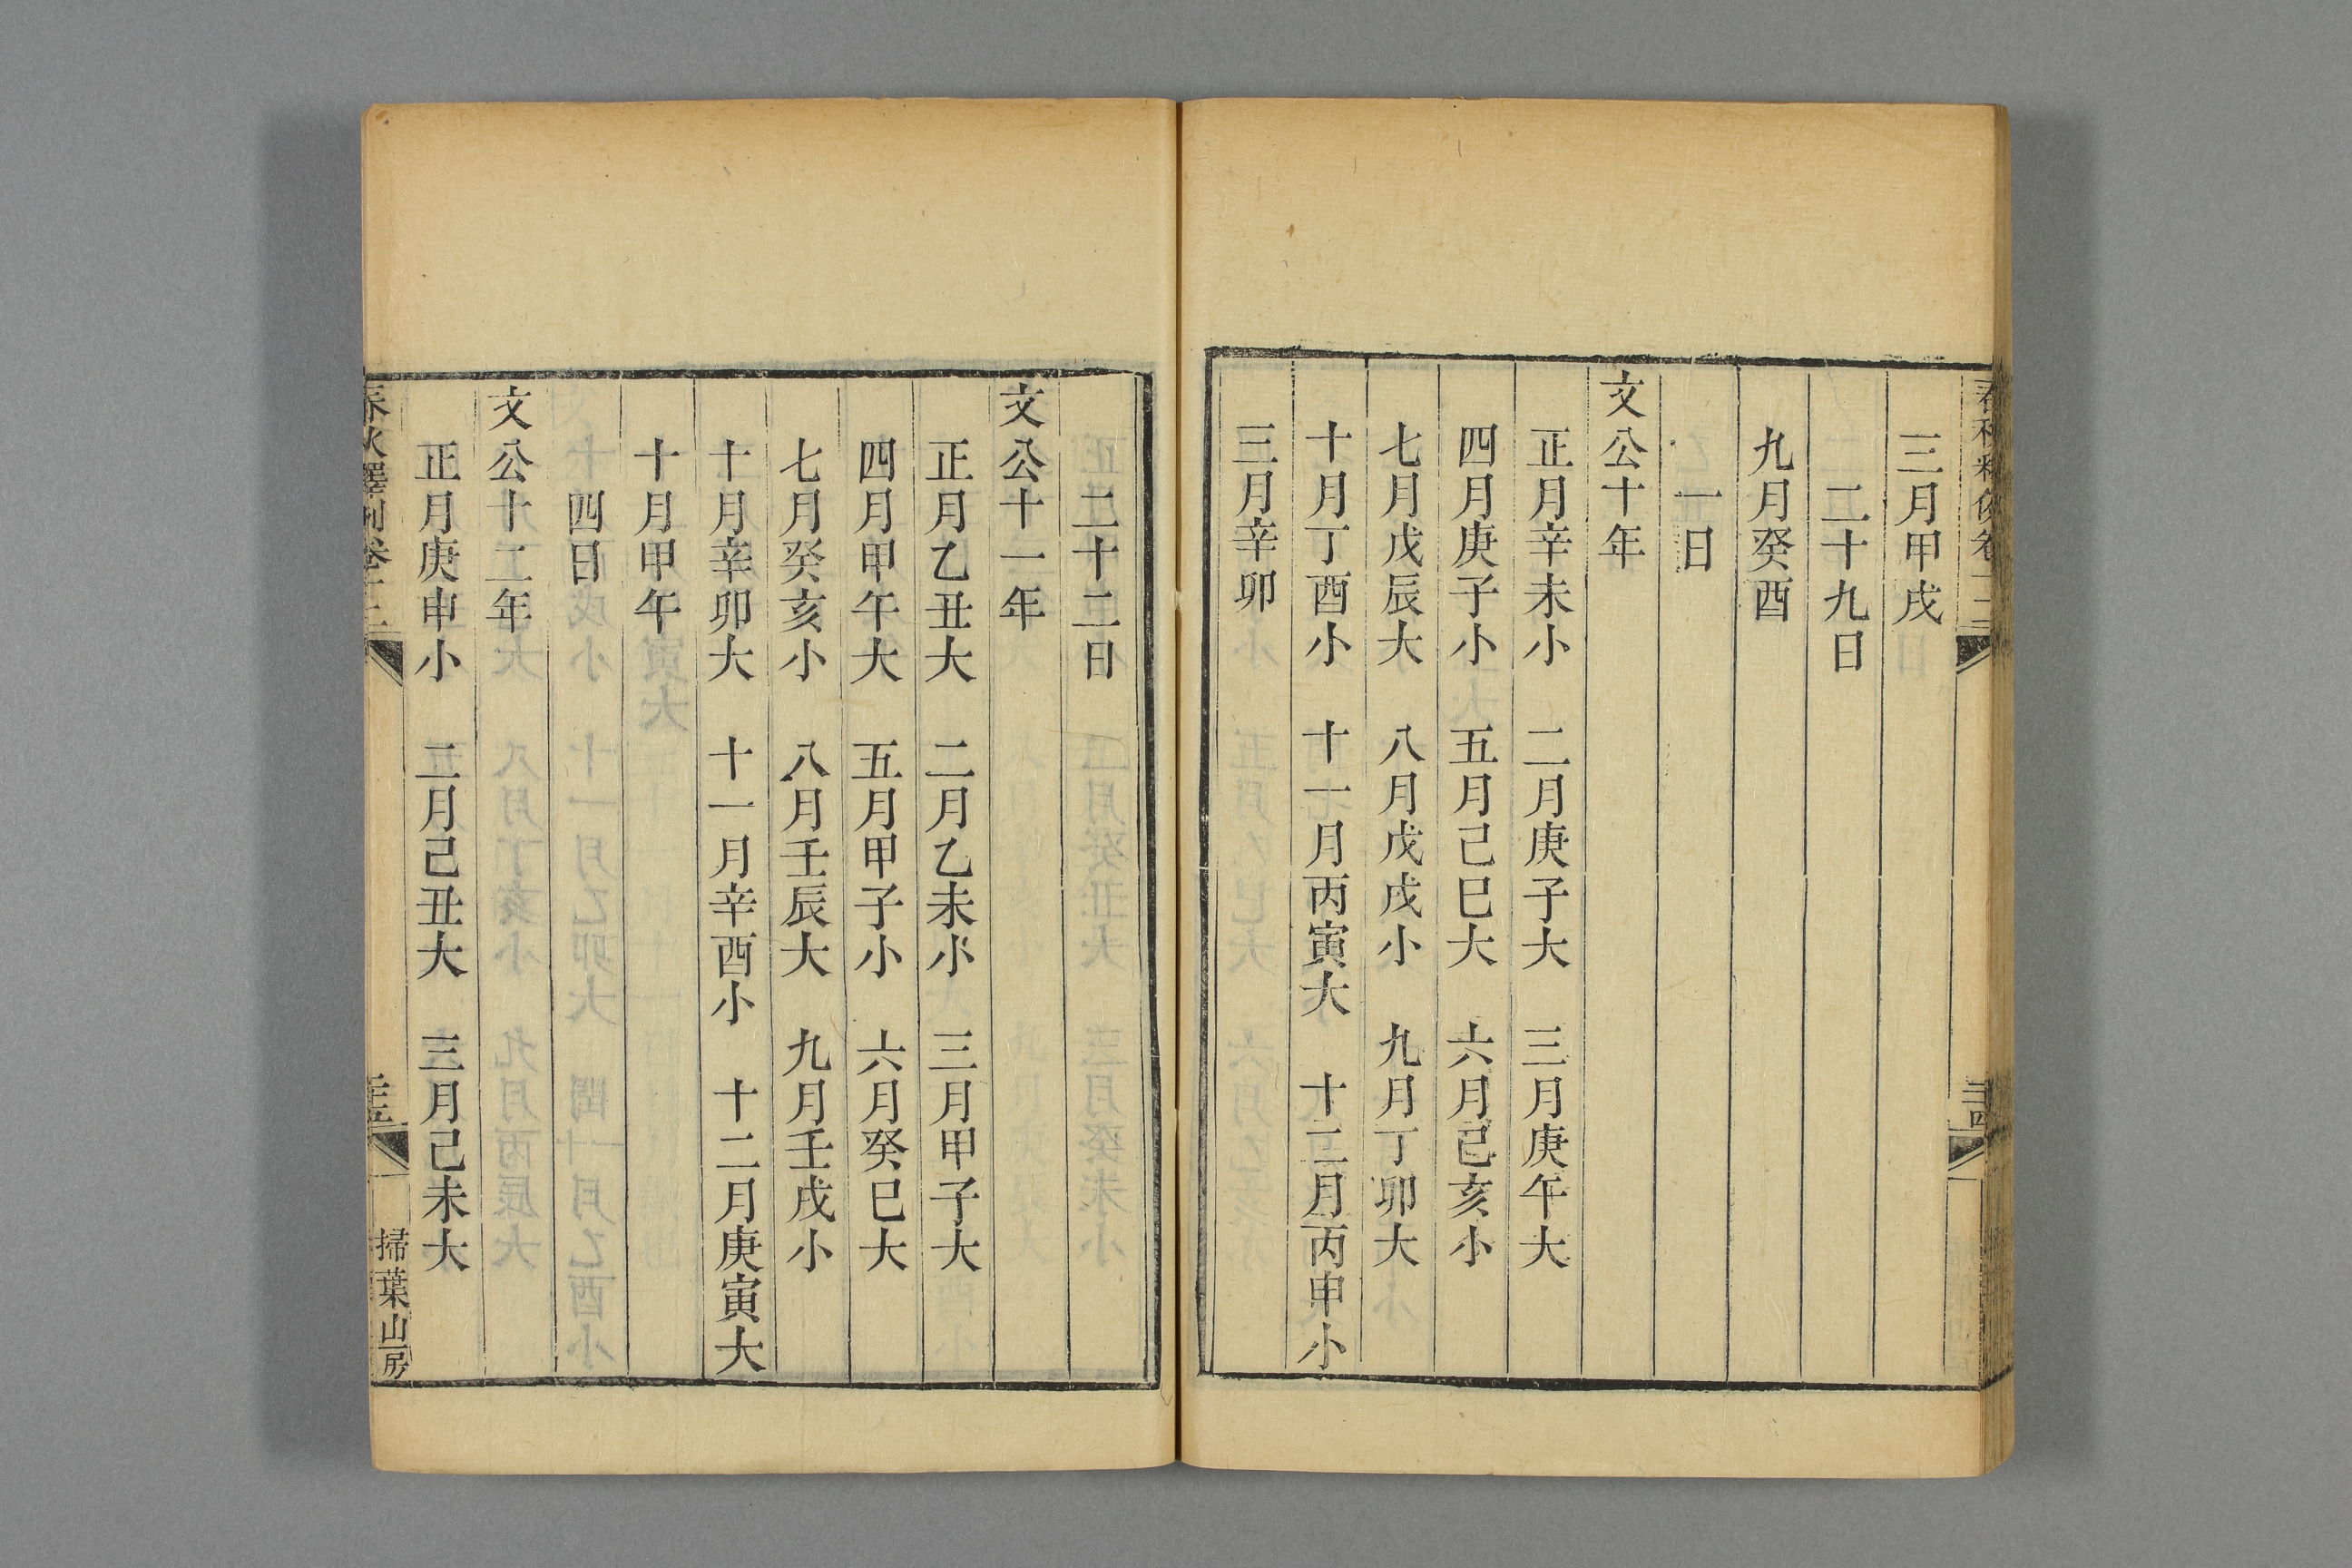 三月甲戌
二十九日
九月癸酉
一日
文公十年
正月辛未小　二月庚子大　三月庚午大
四月庚子小　五月己巳大　六月己亥小
七月戊辰大　八月戊戌小　九月丁卯大
十月丁酉小　十一月丙寅大　十二月丙申小
三月辛卯
二十二日
文公十一年
正月乙丑大　二月乙未小　三月甲子大
四月甲午大　五月甲子小　六月癸巳大
七月癸亥小　八月壬辰大　九月壬戌小
十月辛卯大　十一月辛酉小　十二月庚寅大
十月甲午
四日
文公十二年
正月庚申小　二月己丑大　三月己未大
春秋釋例卷十二
掃葉山房